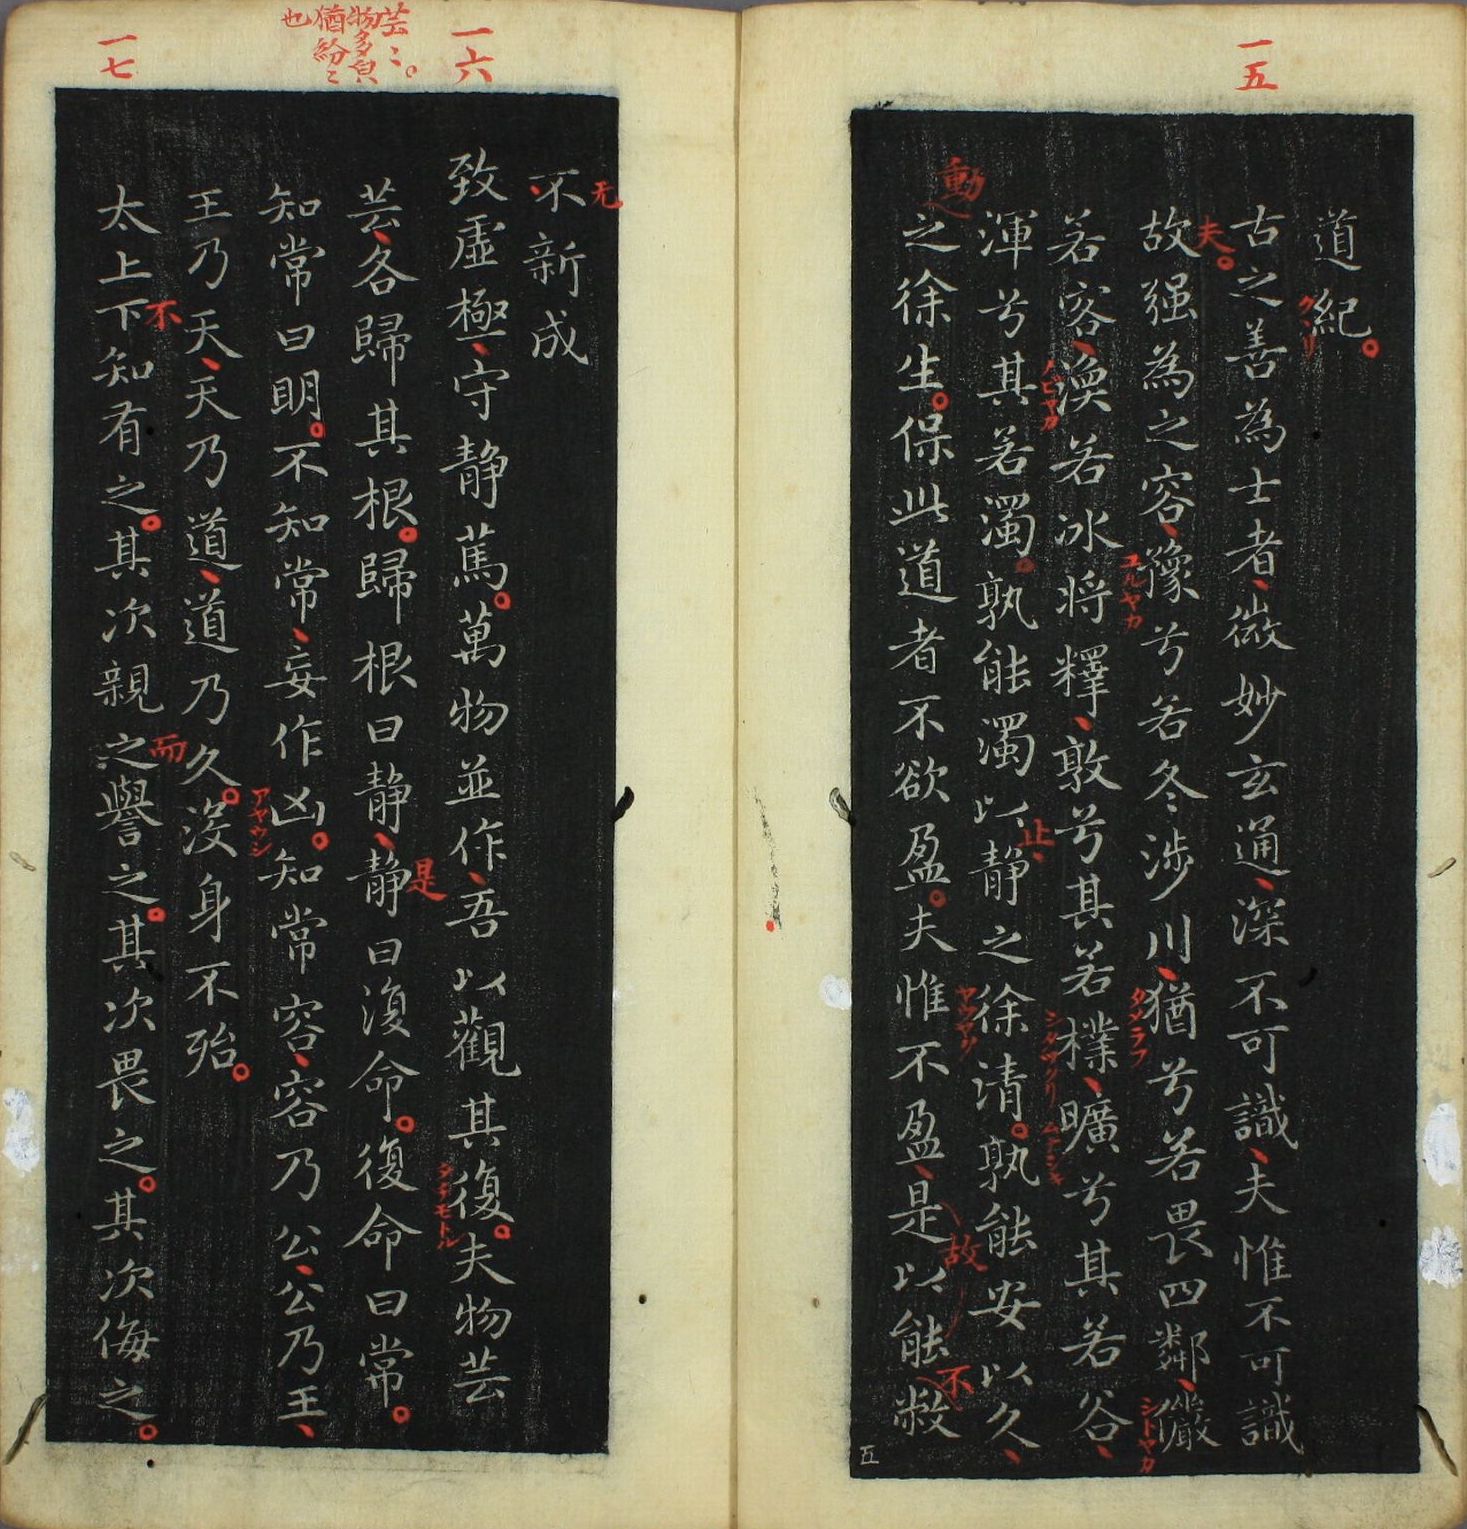 一五
道紀
古之善為士者微妙玄通深不可識夫惟不可識
夫
故强為之容豫兮若冬涉川猶兮若畏四鄰儼
若容渙若冰将釋敦兮其若樸曠兮其若谷
渾兮其若濁孰能濁以静之徐清孰能安以久
止
動
之徐生保此道者不欲盈夫惟不盈是以能敝
故
不
ユルヤカ
タメラフ
シトヤカ
五
一六
芸〻。
物多皃
猶紛〻
也
一七
不新成
无
致虛極守静篤萬物並作吾以觀其復夫物芸
芸各歸其根歸根曰静静曰復命復命曰常
是
知常曰明不知常妄作凶知常容容乃公公乃王
王乃天天乃道道乃久没身不殆
アヤウシ
太上下知有之其次親之譽之其次畏之其次侮之
不
而